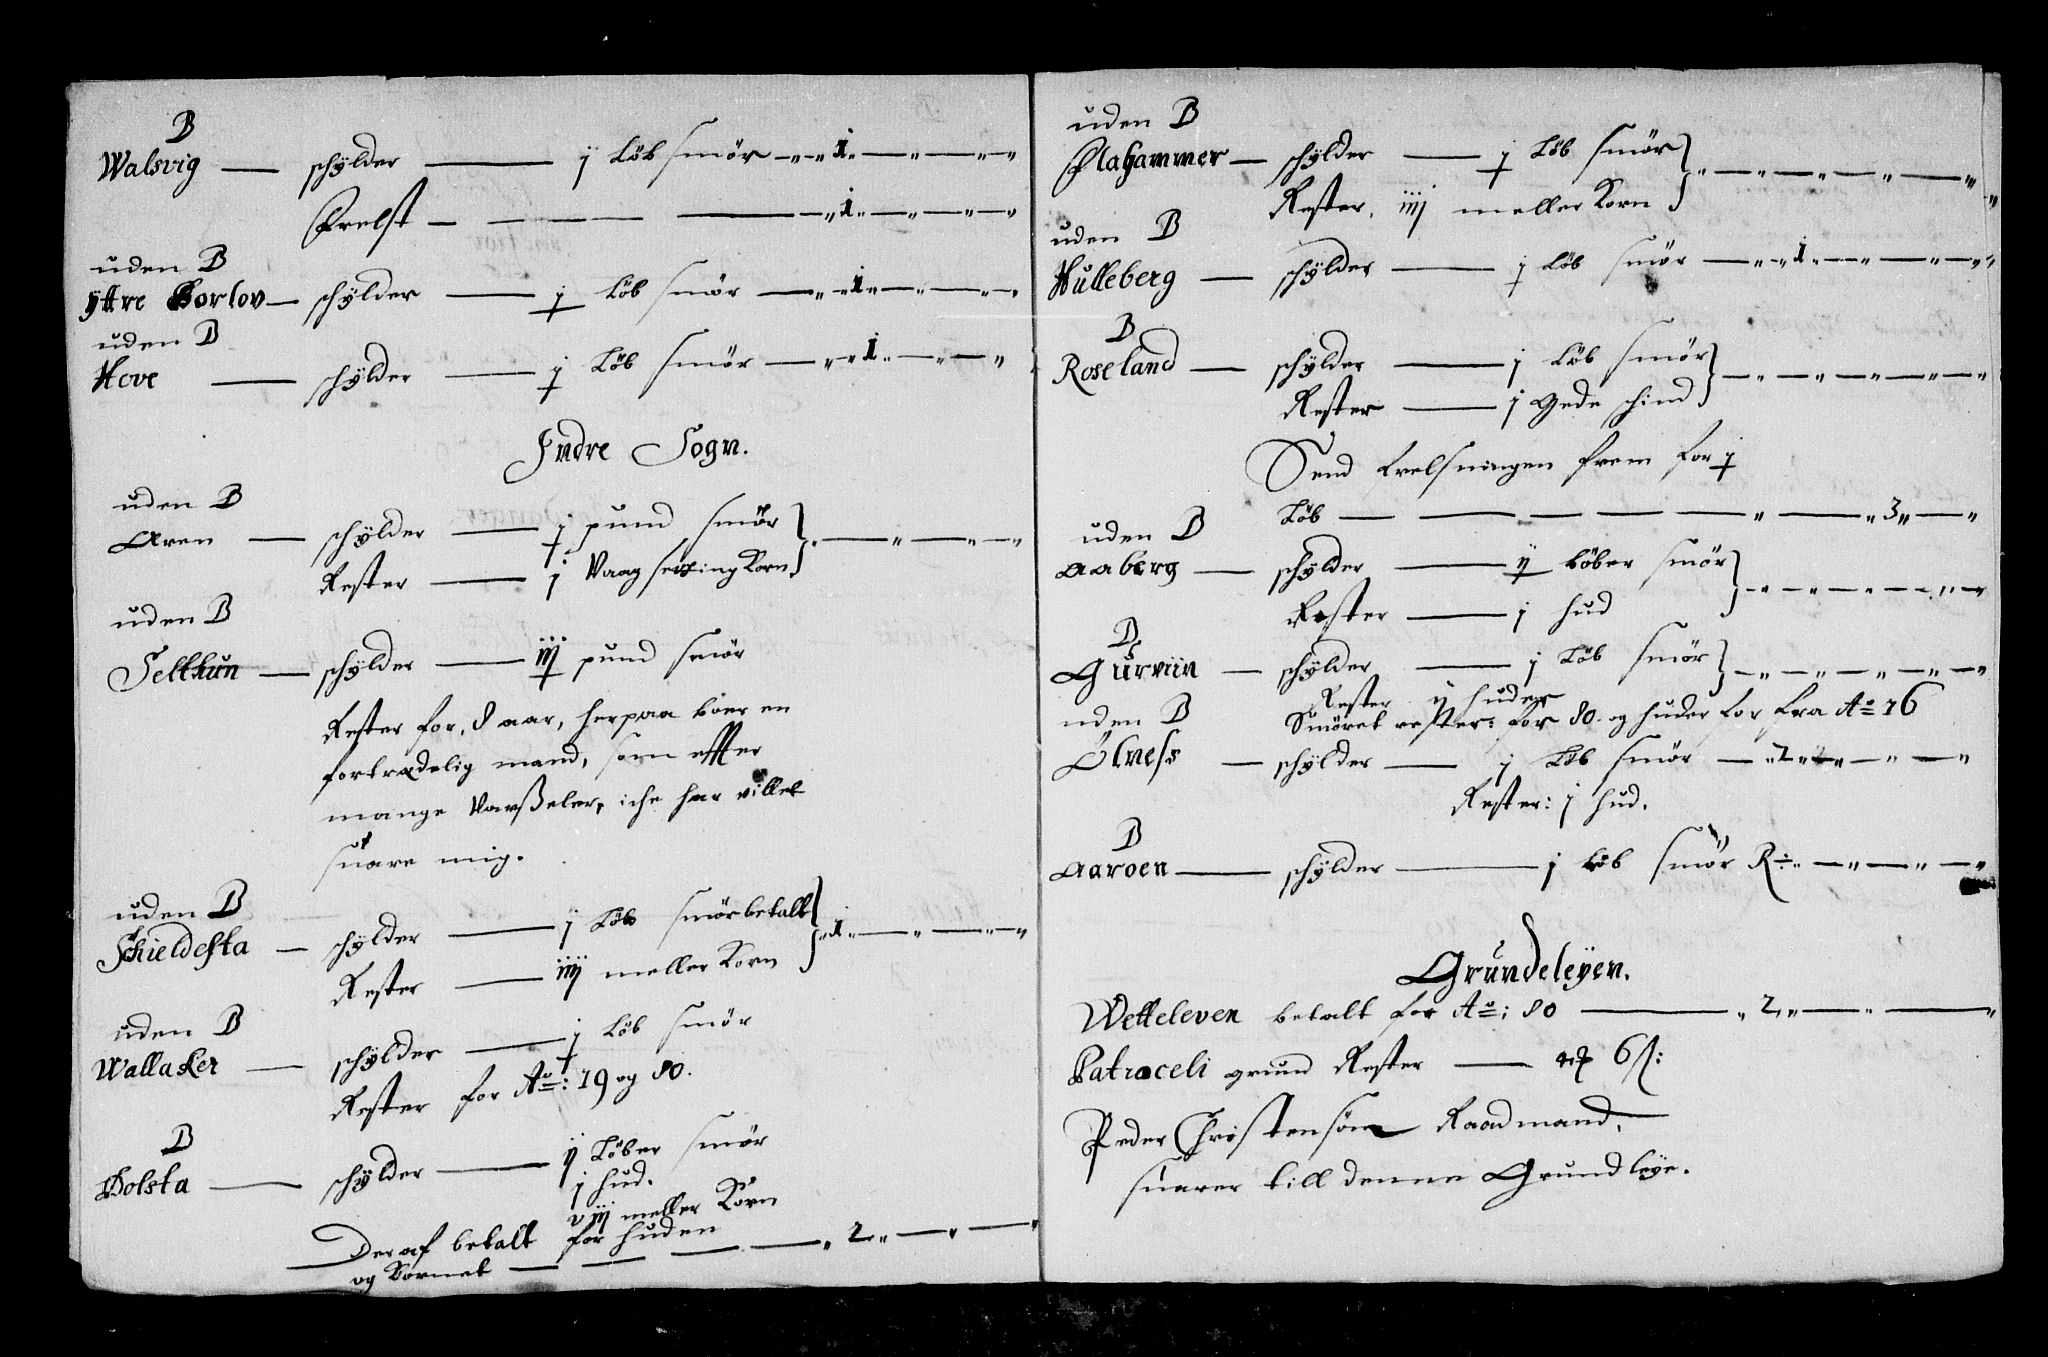 B
Walsvig — schylder — j Löb smör — „ — „ 1 „ — „ — „ — „
Frelst — — — — „ 1 „ — „ — „ — „
uden B
yttre Borlov — schylder — j Löb smör — „ — „ 1 „ — „ — „ — „
uden B
Hove — schylder — j Löb smör — „ — „ 1 „ — „ — „ — „
Indre Sogn.
uden B
Aren — schylder — j pund smör
Rester — j Vaag Korn
uden B
Selthun — schylder — iij pund smör
Rester for, 8 aar, herpaa boer en
fortrædelig mand, som effter
mange Varßeler, iche har villet
suare mig.
uden B
Skieldesta — schylder — j Löb smör betalt „ 1 „ — „ — „ — „
Rester — iiij meller Korn
uden B
Wallaker — schylder — j Löb smör
Rester for Ao: 79 og 80.
B
Bolsta — schylder — ij Löber smör
j hud.
viij meller Korn
Der af betalt for huden
og Kornet — — — — „ 2 „ — „ — „
uden B
Flahammer — schylder — j Löb smör
Rester, iiij meller Korn
uden B
Hulleberg — schylder — j Löb smör — „ — „ 1 „ — „ — „ — „
B
Roseland — schylder — j Löb smör
Rester — j Gede schind
Send frelsningen frem for j
Löb — — — — — „ — „ 3 „ — „
uden B
Aaberg — schylder — ij Löber smör
Rester — j hud
B
Gurviin — schylder — j Löb smör
Rester ij huder
Smöret rester: for 80. og huder for fra Ao 76
uden B
Ölness — schylder — j Löb smör — „ 2 „ — „ — „ — „
Rester: j hud.
B
Aaroen — schylder — j Löb smör R „ — „ — „ — „
Grundeleyen.
Wetteleven betalt for Ao: 80 — „ 2 „ — „ — „
Patroceli grund Rester — 6 ß:
Peder Christensön Raadmand,
suarer till denne Grundleye.